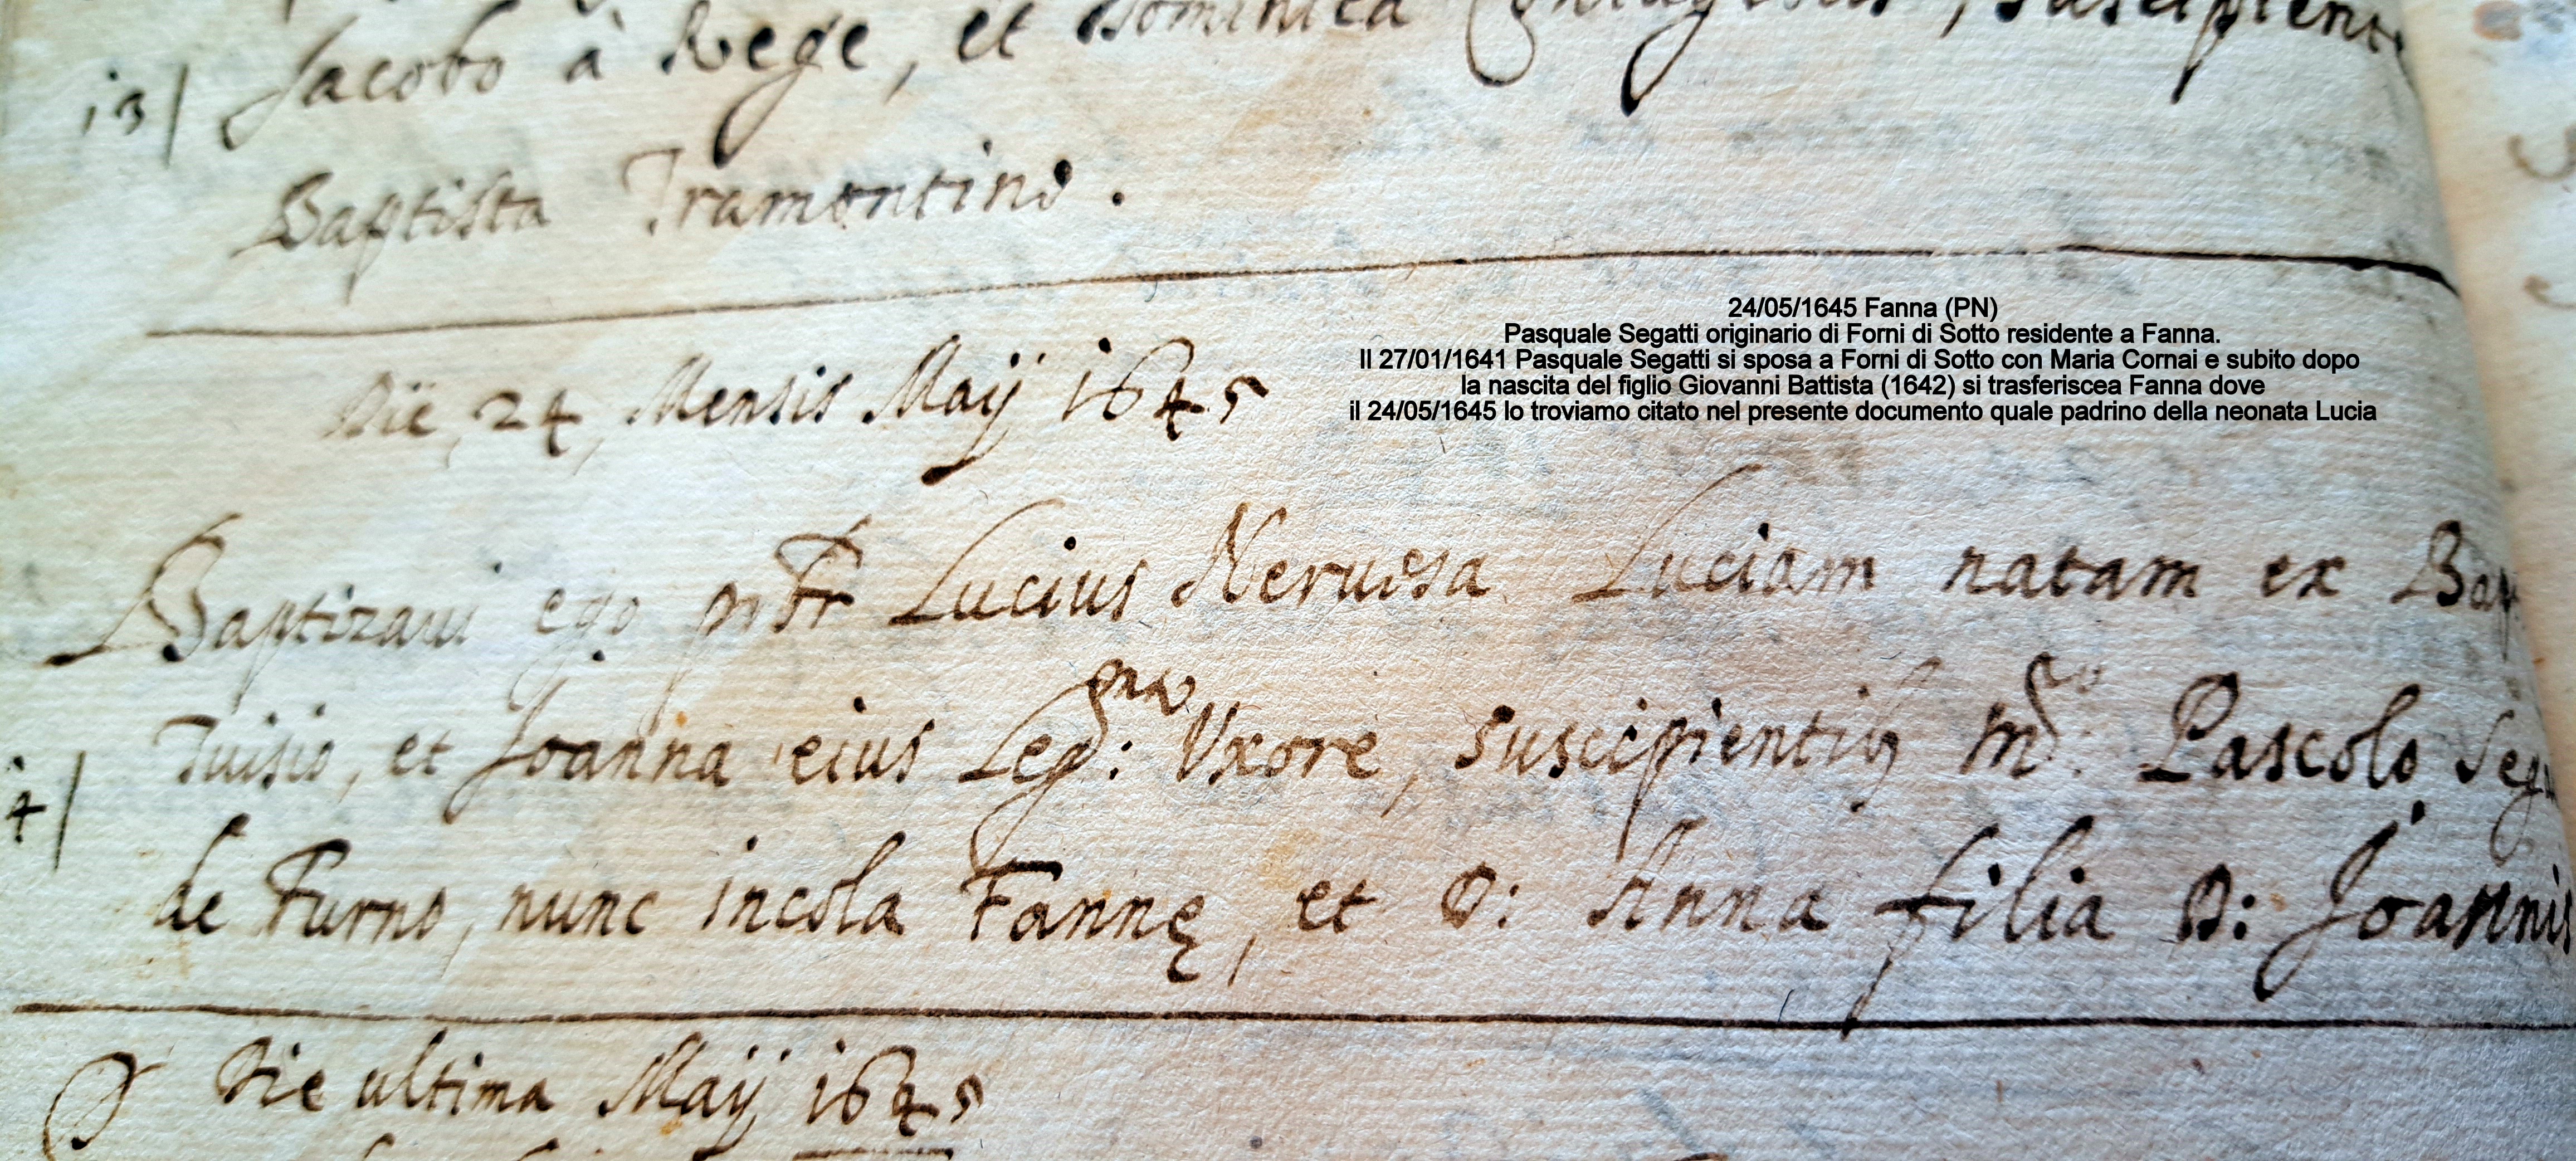 Jacobo à Rege, et Dominica
13|
Baptista Tramontino.
Die, 24, Mensis Maij 1645
24/05/1645 Fanna (PN)
Pasquale Segatti originario di Forni di Sotto residente a Fanna.
Il 27/01/1641 Pasquale Segatti si sposa a Forni di Sotto con Maria Cornai e subito dopo
la nascita del figlio Giovanni Battista (1642) si trasferiscea Fanna dove
il 24/05/1645 lo troviamo citato nel presente documento quale padrino della neonata Lucia
Baptizaui ego prŕ Lucius Neruesa Luciam natam ex Bap
Tuisio, et Joanna eius Leg: Vxore, suscipientib9 mo: Pascolo Seg
4|
de Furno, nunc incola Fannę, et D: Anna filia D: Joannis
Die ultima Maij 1645